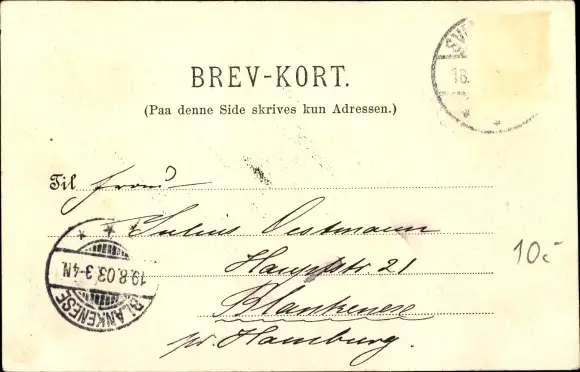 BREV-KORT.
(Paa denne Side skrives kun Adressen.)
Til
Julius Oestmann
Hauptstr. 21
Blankenese
pr. Hamburg.
10.-
SV
18.
19.8.03.3-4N.
BLANKENESE